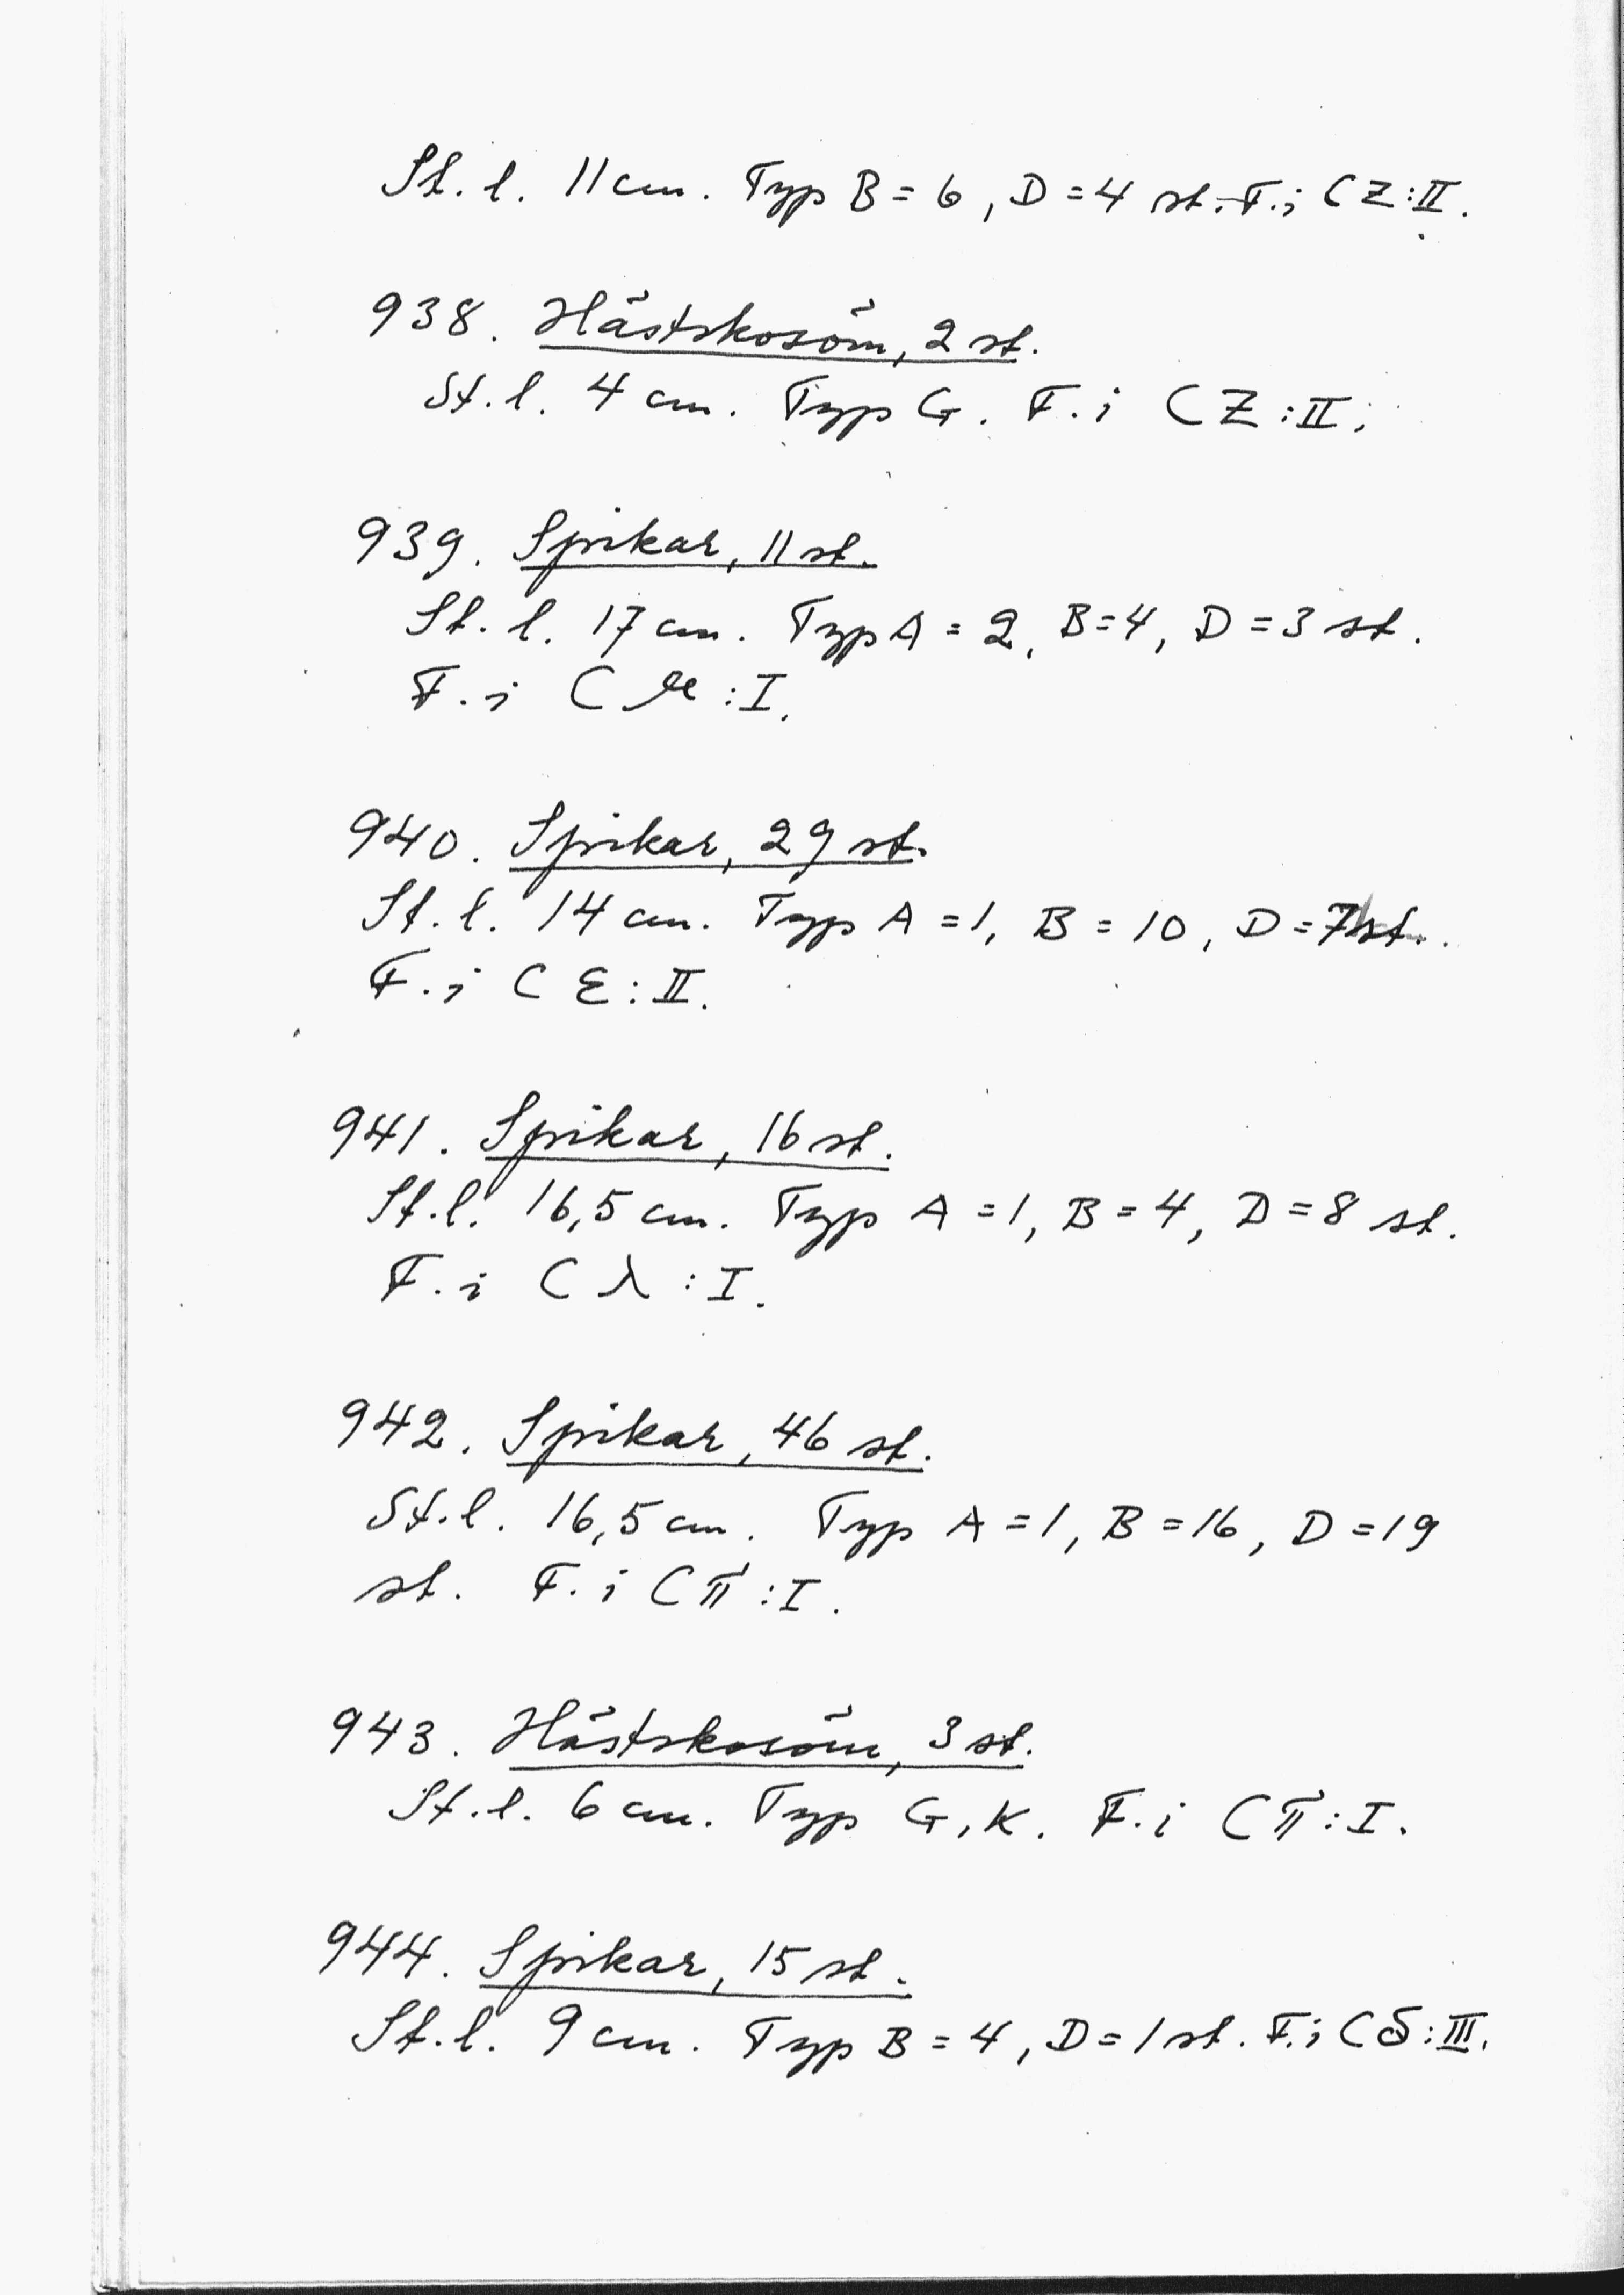 St. l. 11 cm. Typ B = 6, D = 4 st. F. i CZ:II.
938. Hästskosöm, 2 st.
St. l. 4 cm. Typ G. F. i CZ:II.
939. Spikar, 11 st.
St. l. 17 cm. Typ A = 2, B = 4, D = 3 st.
F. i C μ:I.
940. Spikar, 29 st.
St. l. 14 cm. Typ A = 1, B = 10, D = 7 st.
F. i C ε:II.
941. Spikar, 16 st.
St. l. 16,5 cm. Typ A = 1, B = 4, D = 8 st.
F. i C λ:I.
942. Spikar, 46 st.
St. l. 16,5 cm. Typ A = 1, B = 16, D = 19
st. F. i C π:I.
943. Hästskosöm, 3 st.
St. l. 6 cm. Typ G, K. F. i C π:I.
944. Spikar, 15 st.
St. l. 9 cm. Typ B = 4, D = 1 st. F. i C δ:III.